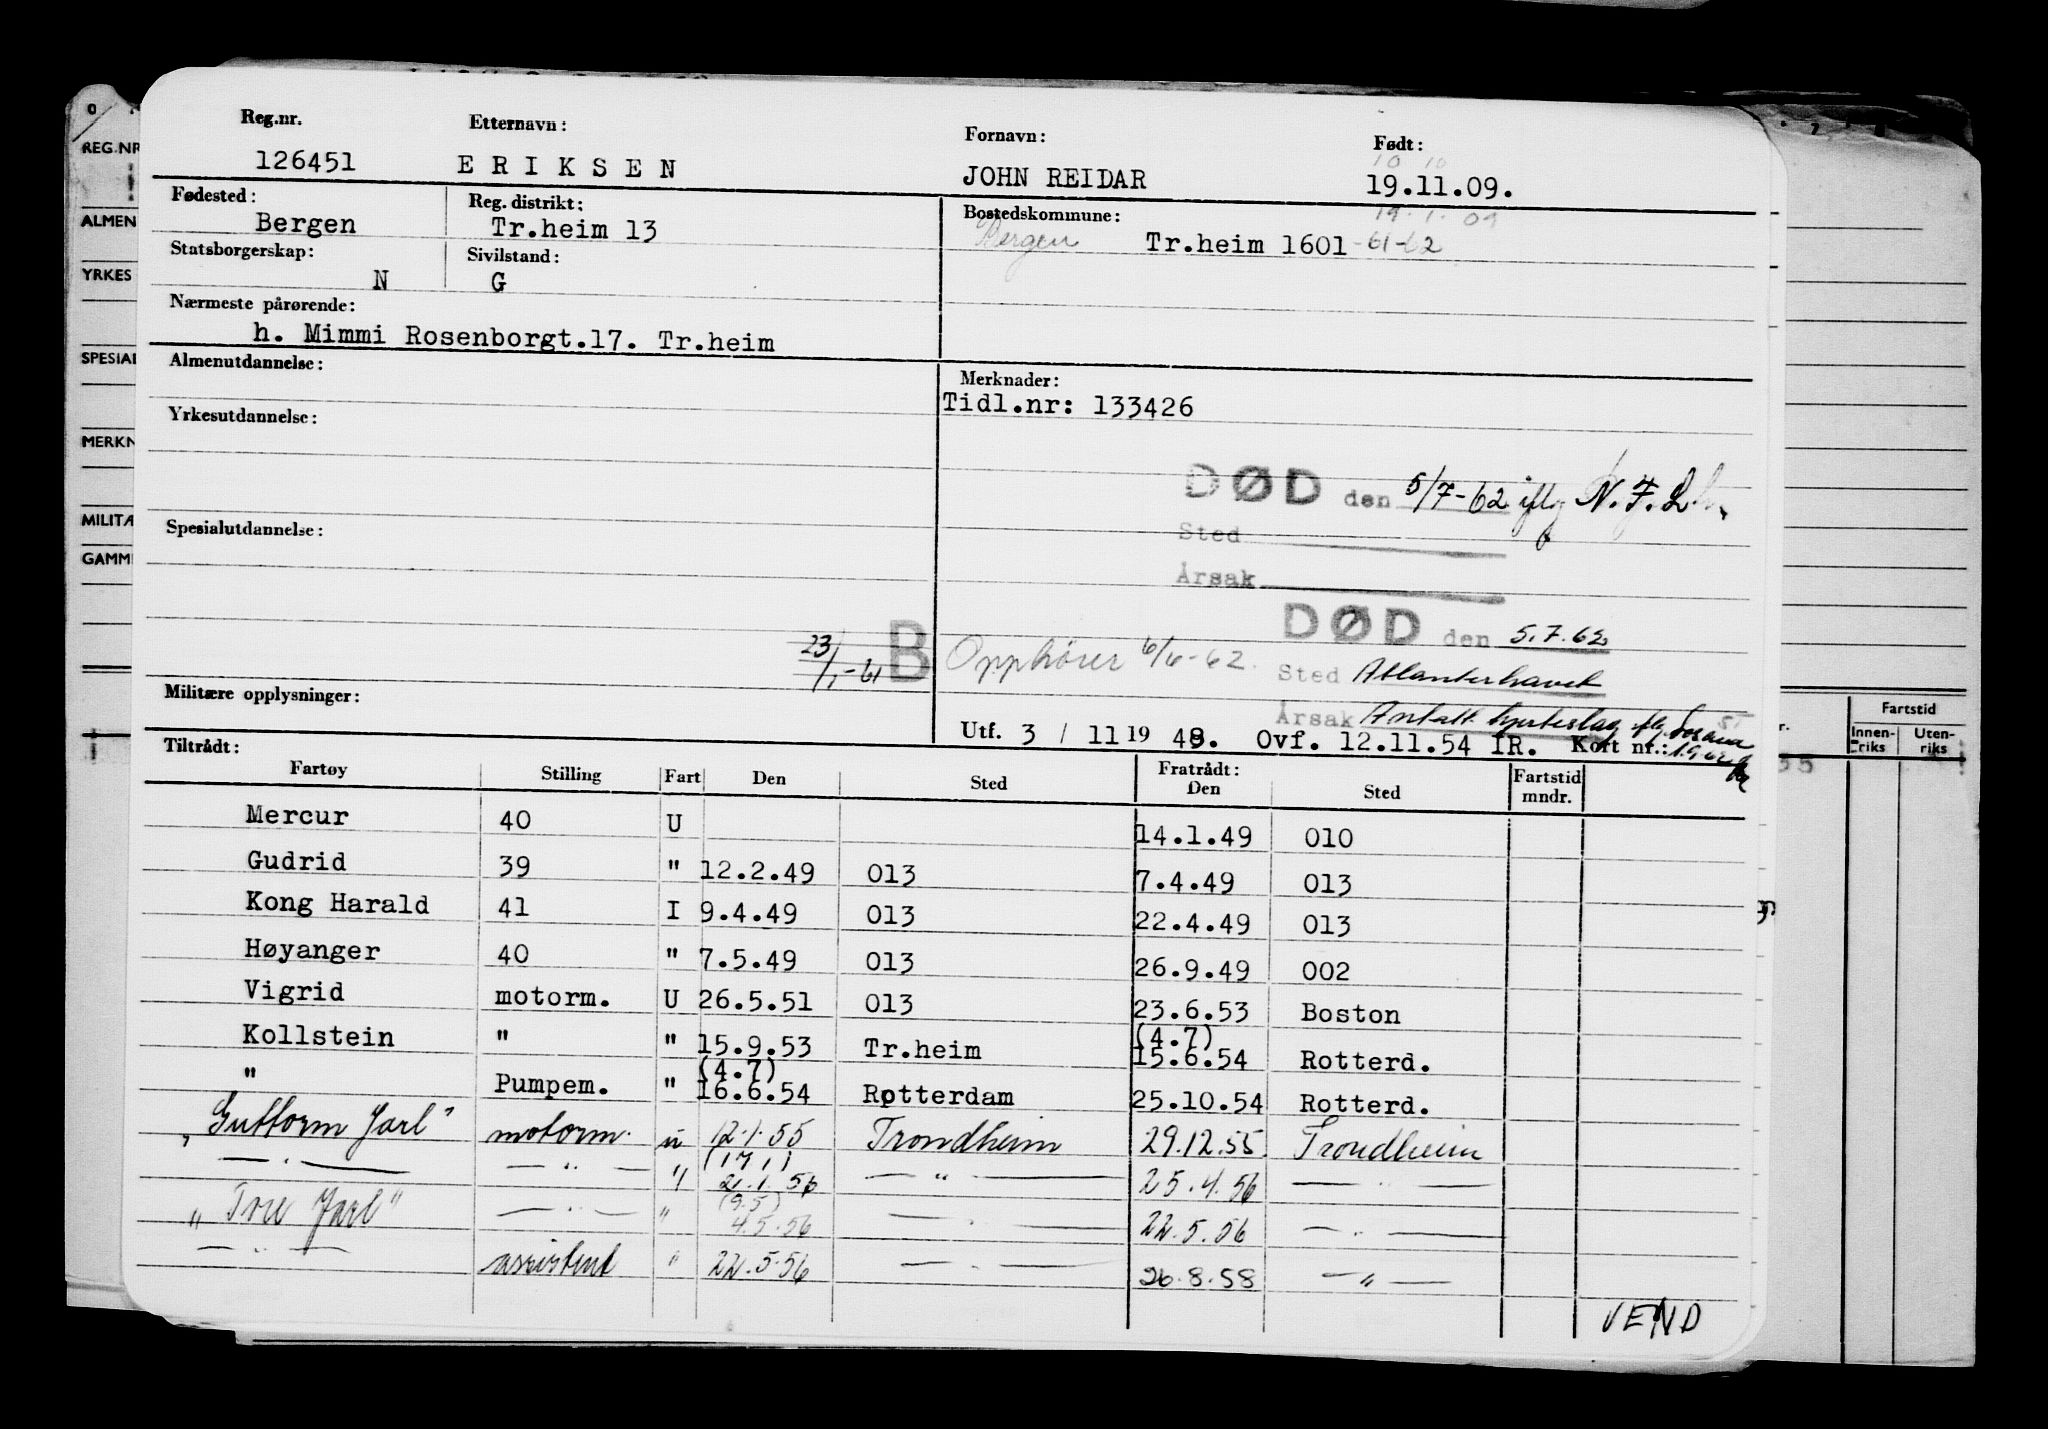 Reg.nr. Etternavn: Fornavn: Født:
10 10
126451 ERIKSEN JOHN REIDAR 19.11.09.
Fødested: Reg. distrikt: Bostedskommune: 19.1.09
Bergen Tr.heim 13 Bergen Tr.heim 1601-61-62
Statsborgerskap: Sivilstand:
N G
Nærmeste pårørende:
h. Mimmi Rosenborgt.17. Tr.heim
Almenutdannelse: Merknader:
Tidl.nr: 133426
Yrkesutdannelse:
DØD den 5/7-62 iflg N.F.
Spesialutdannelse: Sted
Årsak
DØD den 5.7.62
23/1-61 B Opphører 6/6-62. Sted Atlanterhavet
Militære opplysninger: Årsak Antatt hjerteslag iflg
Utf. 3 / 11 19 48. Ovf. 12.11.54 IR. Kort nr.:
Tiltrådt: Fratrådt:
Fartøy Stilling Fart Den Sted Den Sted Fartstid mndr.
Mercur 40 U 14.1.49 010
Gudrid 39 " 12.2.49 013 7.4.49 013
Kong Harald 41 I 9.4.49 013 22.4.49 013
Høyanger 40 " 7.5.49 013 26.9.49 002
Vigrid motorm. U 26.5.51 013 23.6.53 Boston
(4.7)
Kollstein " " 15.9.53 Tr.heim 15.6.54 Rotterd.
(4.7)
" Pumpem. " 16.6.54 Rotterdam 25.10.54 Rotterd.
"Guttorm Jarl" motorm. u 12.1.55 Trondheim 29.12.55 Trondheim
(17 1)
— " — — " — " 21.1.56 — " — 25.4.56 — " —
(9.5)
"Tore Jarl" — " — " 4.5.56 — " — 22.5.56 — " —
— " — assistent " 22.5.56 — " — 26.8.58 — " —
VEND
REG.NR
ALMEN
YRKES
SPESIAL
MERKN
MILITÆ
GAMM
Fartstid
Innen-riks Uten-riks